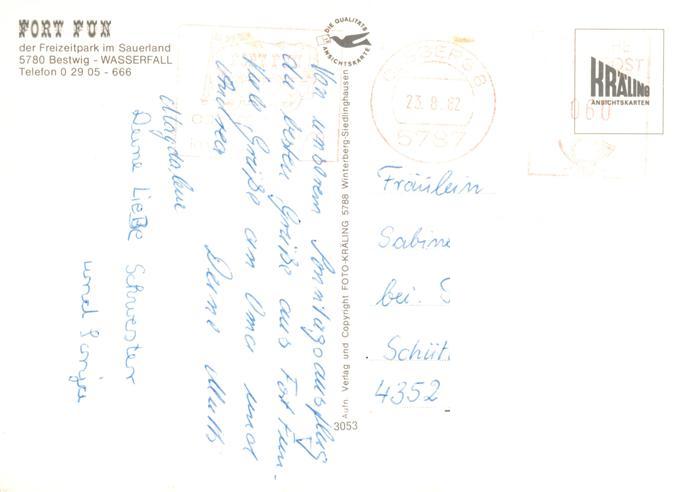 FORT FUN
der Freizeitpark im Sauerland
5780 Bestwig - WASSERFALL
Telefon 0 29 05 - 666
DIE QUALITÄTS
ANSICHTSKARTE
Aufn. Verlag und Copyright FOTO-KRÄLING 5788 Winterberg-Siedlinghausen
3053
23.8.82
5787
060
KRÄLING
ANSICHTSKARTEN
Von unserem Sonntagsausflug
die besten Grüße aus Fort Fun.
Viele Grüße an Oma und
Andrea Deine Mutti
Magdalene
Deine LieBe Schwester
und
Fräulein
Sabine
bei.
Schüt
4352